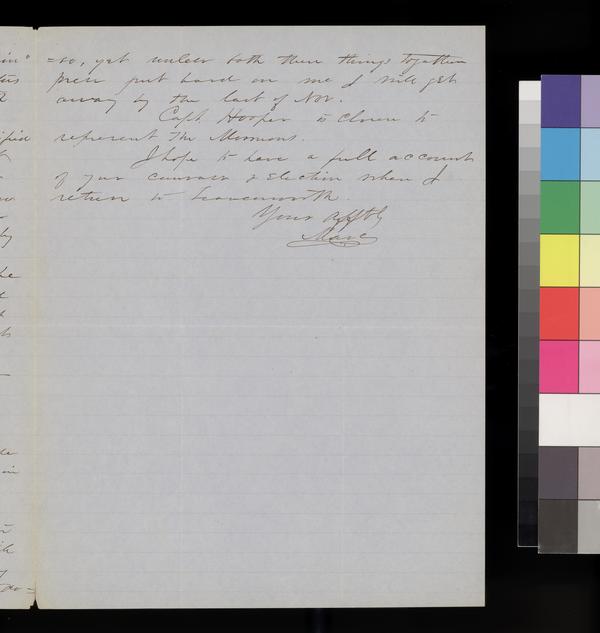 =so, yet unless both these things together
press put hard on me I will get
away by the last of Nov.
Capt. Hooper is chosen to
represent the Mormons.
I hope to have a full account
of your canvass & Election when I
return to Leavenworth.
Your Afftly